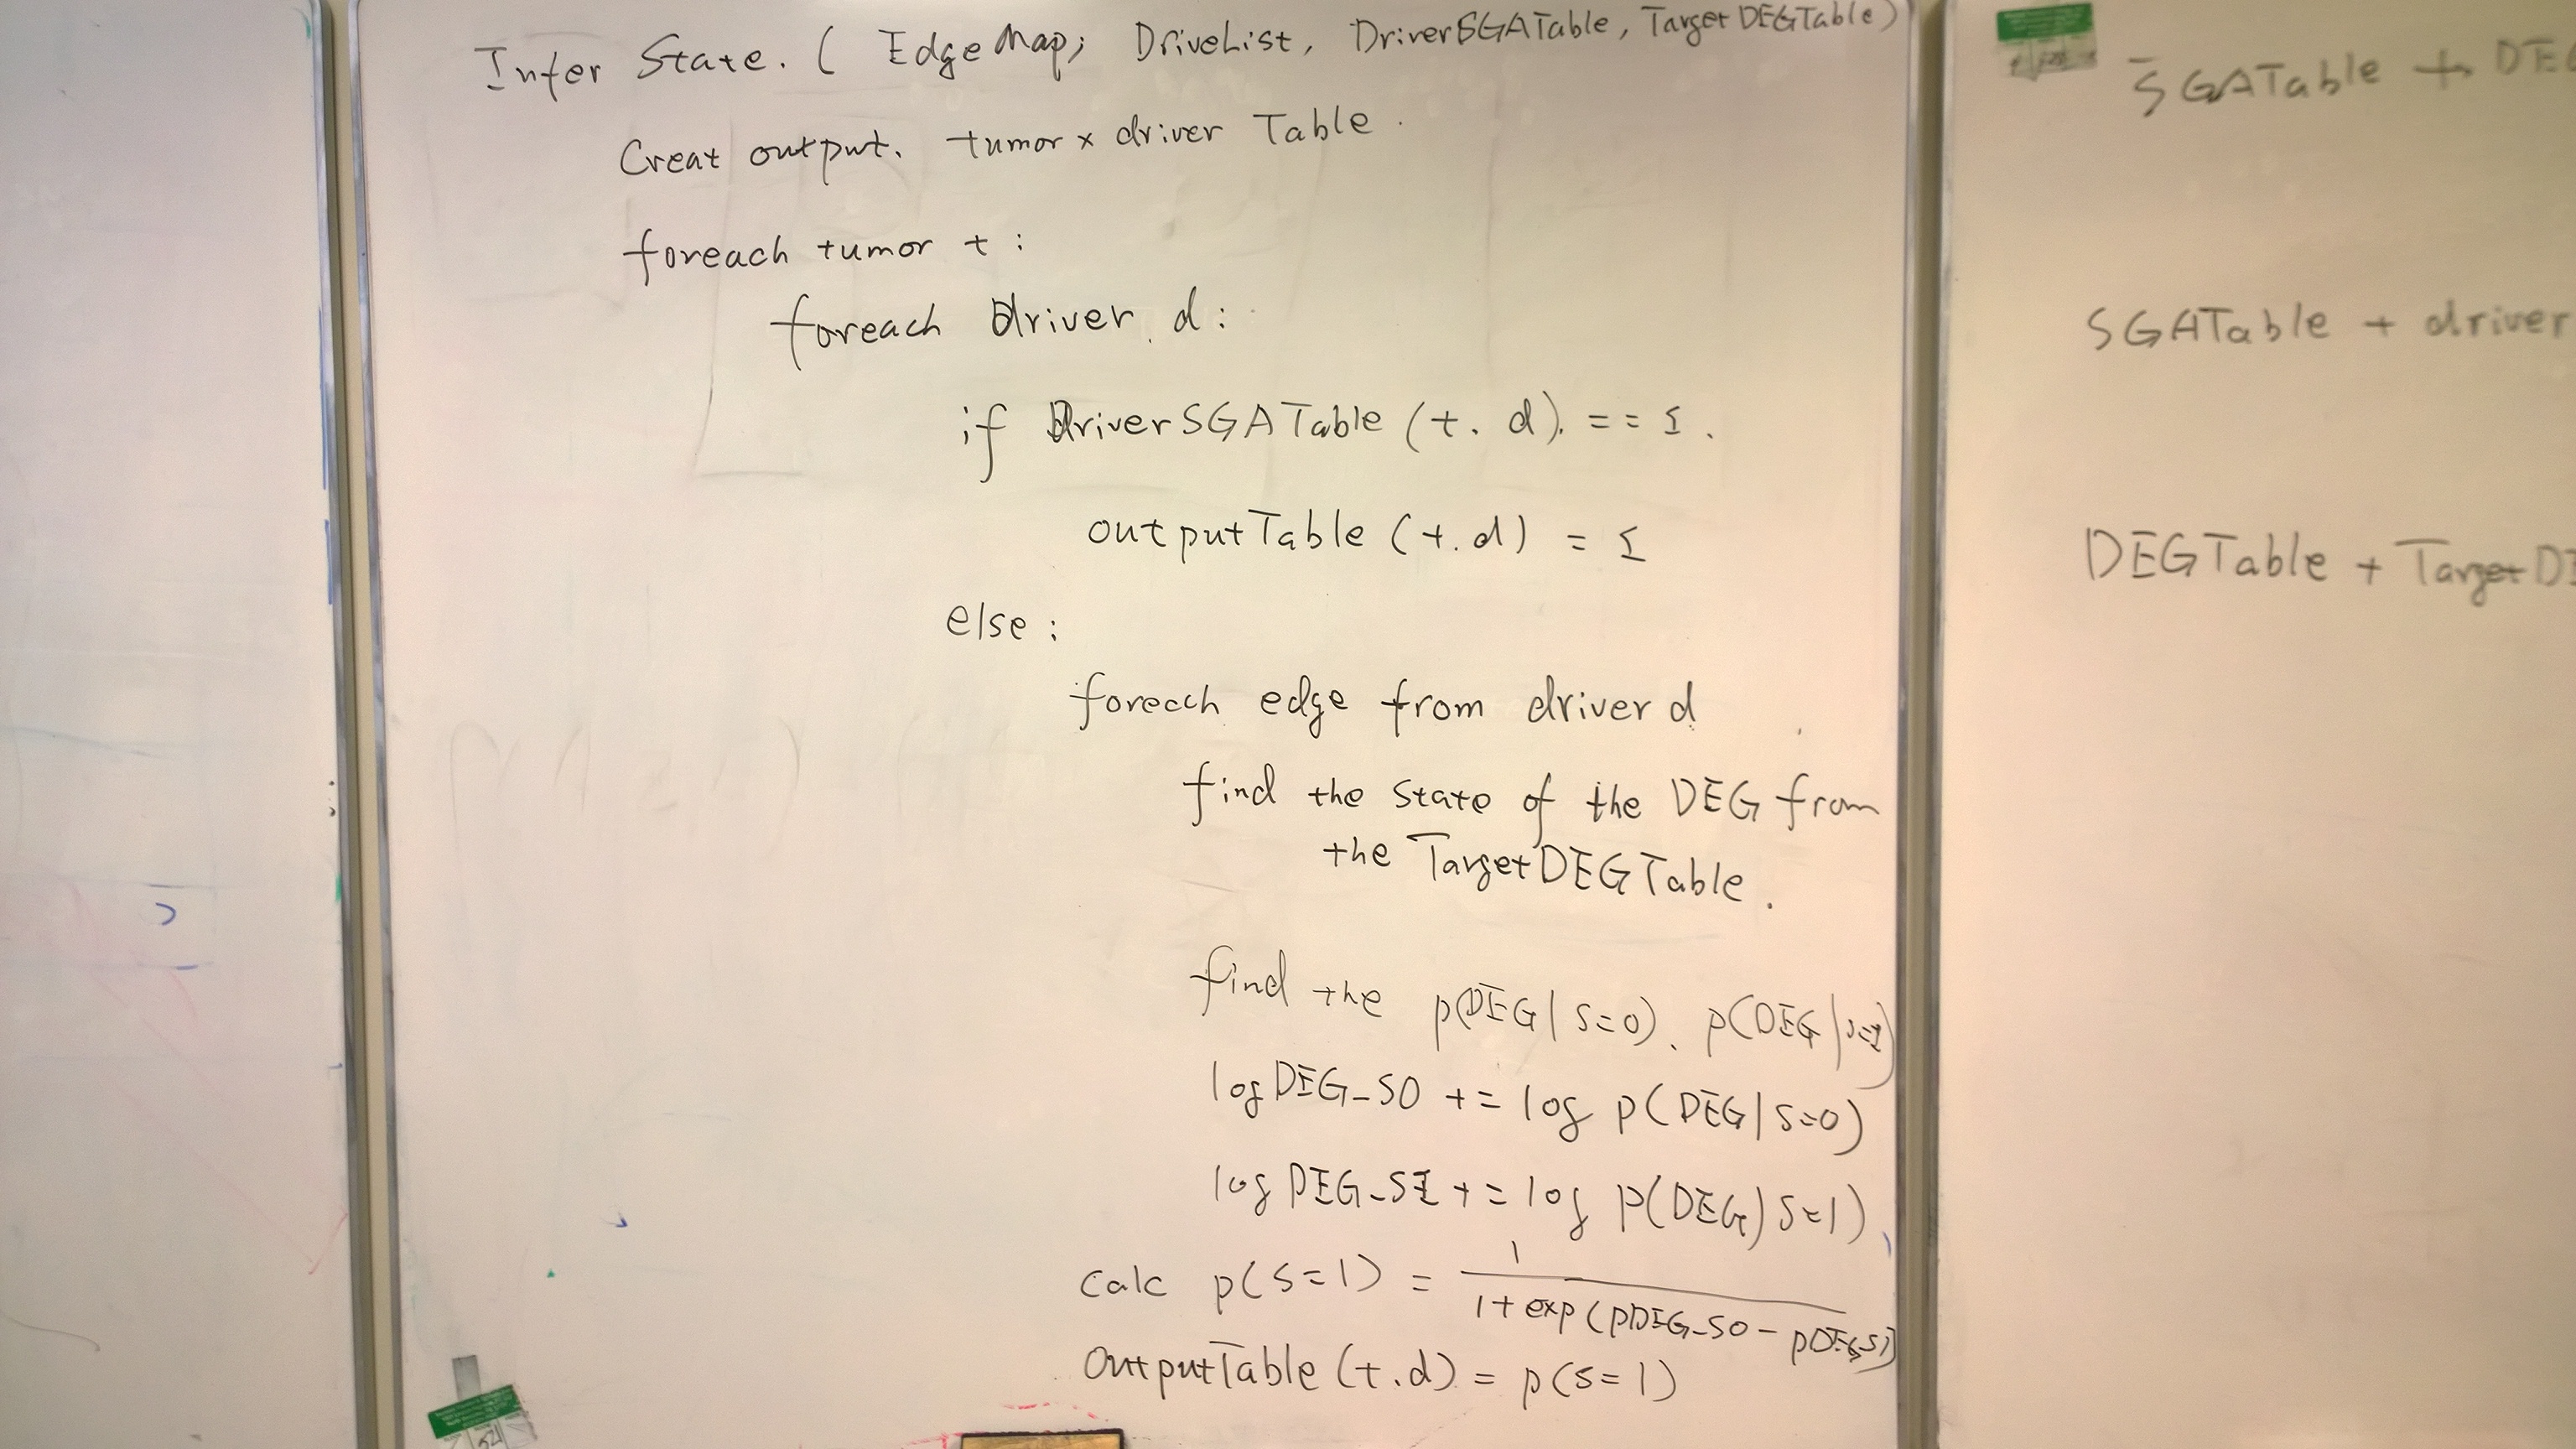 Infer State. ( EdgeMap; DriveList, DriverSGATable, TargetDEGTable)
Creat output. tumor x driver Table.
foreach tumor t :
foreach driver d :
if DriverSGATable (t. d). == 1 .
outputTable (t.d) = 1
else :
foreach edge from driver d
find the state of the DEG from
the TargetDEGTable.
find the p(DEG|s=0). p(DEG|s=1)
logDEG_S0 += log p(DEG|s=0)
logDEG_S1 += log p(DEG)s=1)
calc p(s=1) = 1
1+exp(pDEG_S0 - pDEG_S1)
OutputTable (t.d) = p(s=1)
SGATable + DEG
SGATable + driver
DEGTable + TargetDE